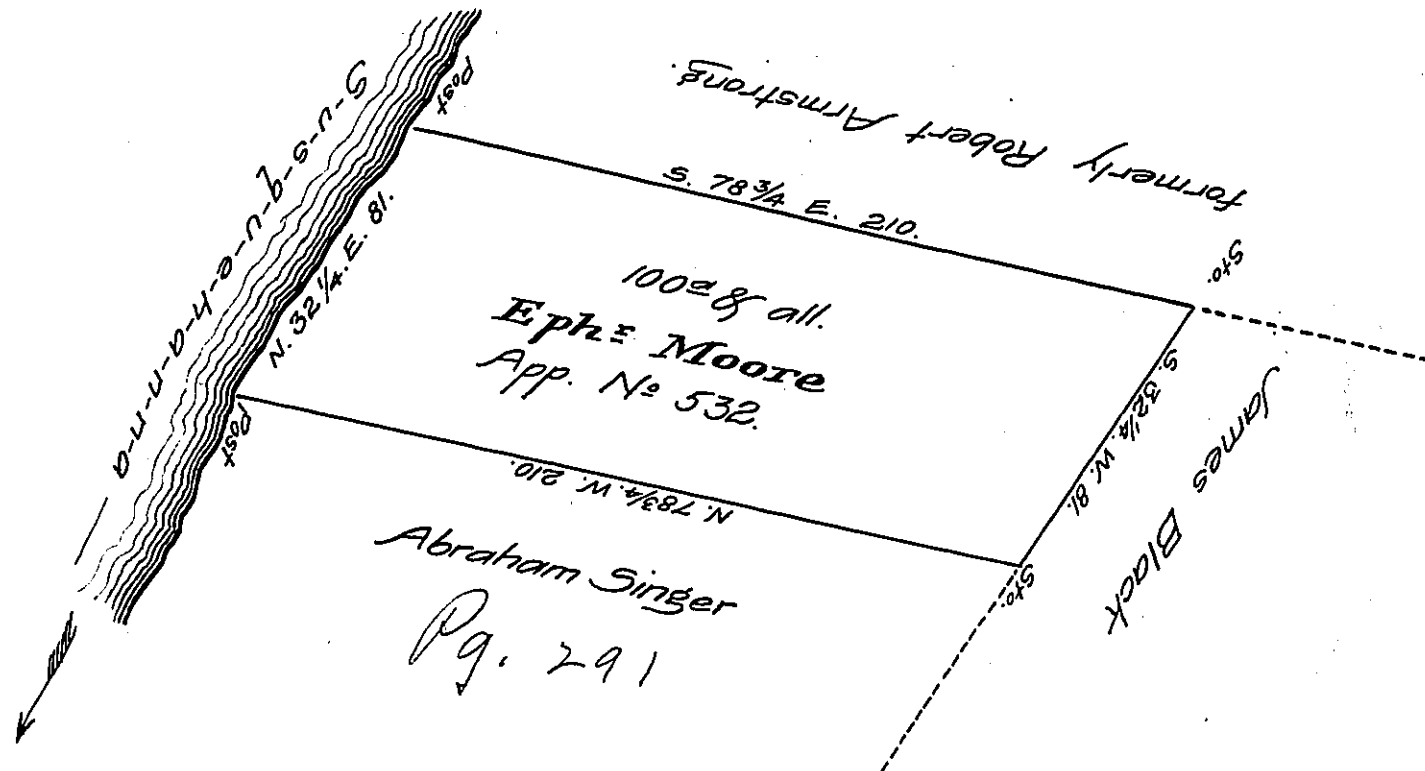 S-u-s-q-u-e-h-a-n-n-a
Post
formerly Robert Armstrong.
S. 78 3/4 E. 210.
Sto.
N. 32 1/4. E. 81.
100a & all.
Ephm Moore
App. No 532.
S. 32 1/4. W. 81.
James Black
Post
N. 78 3/4. W. 210.
Sto.
Abraham Singer
Pg. 291